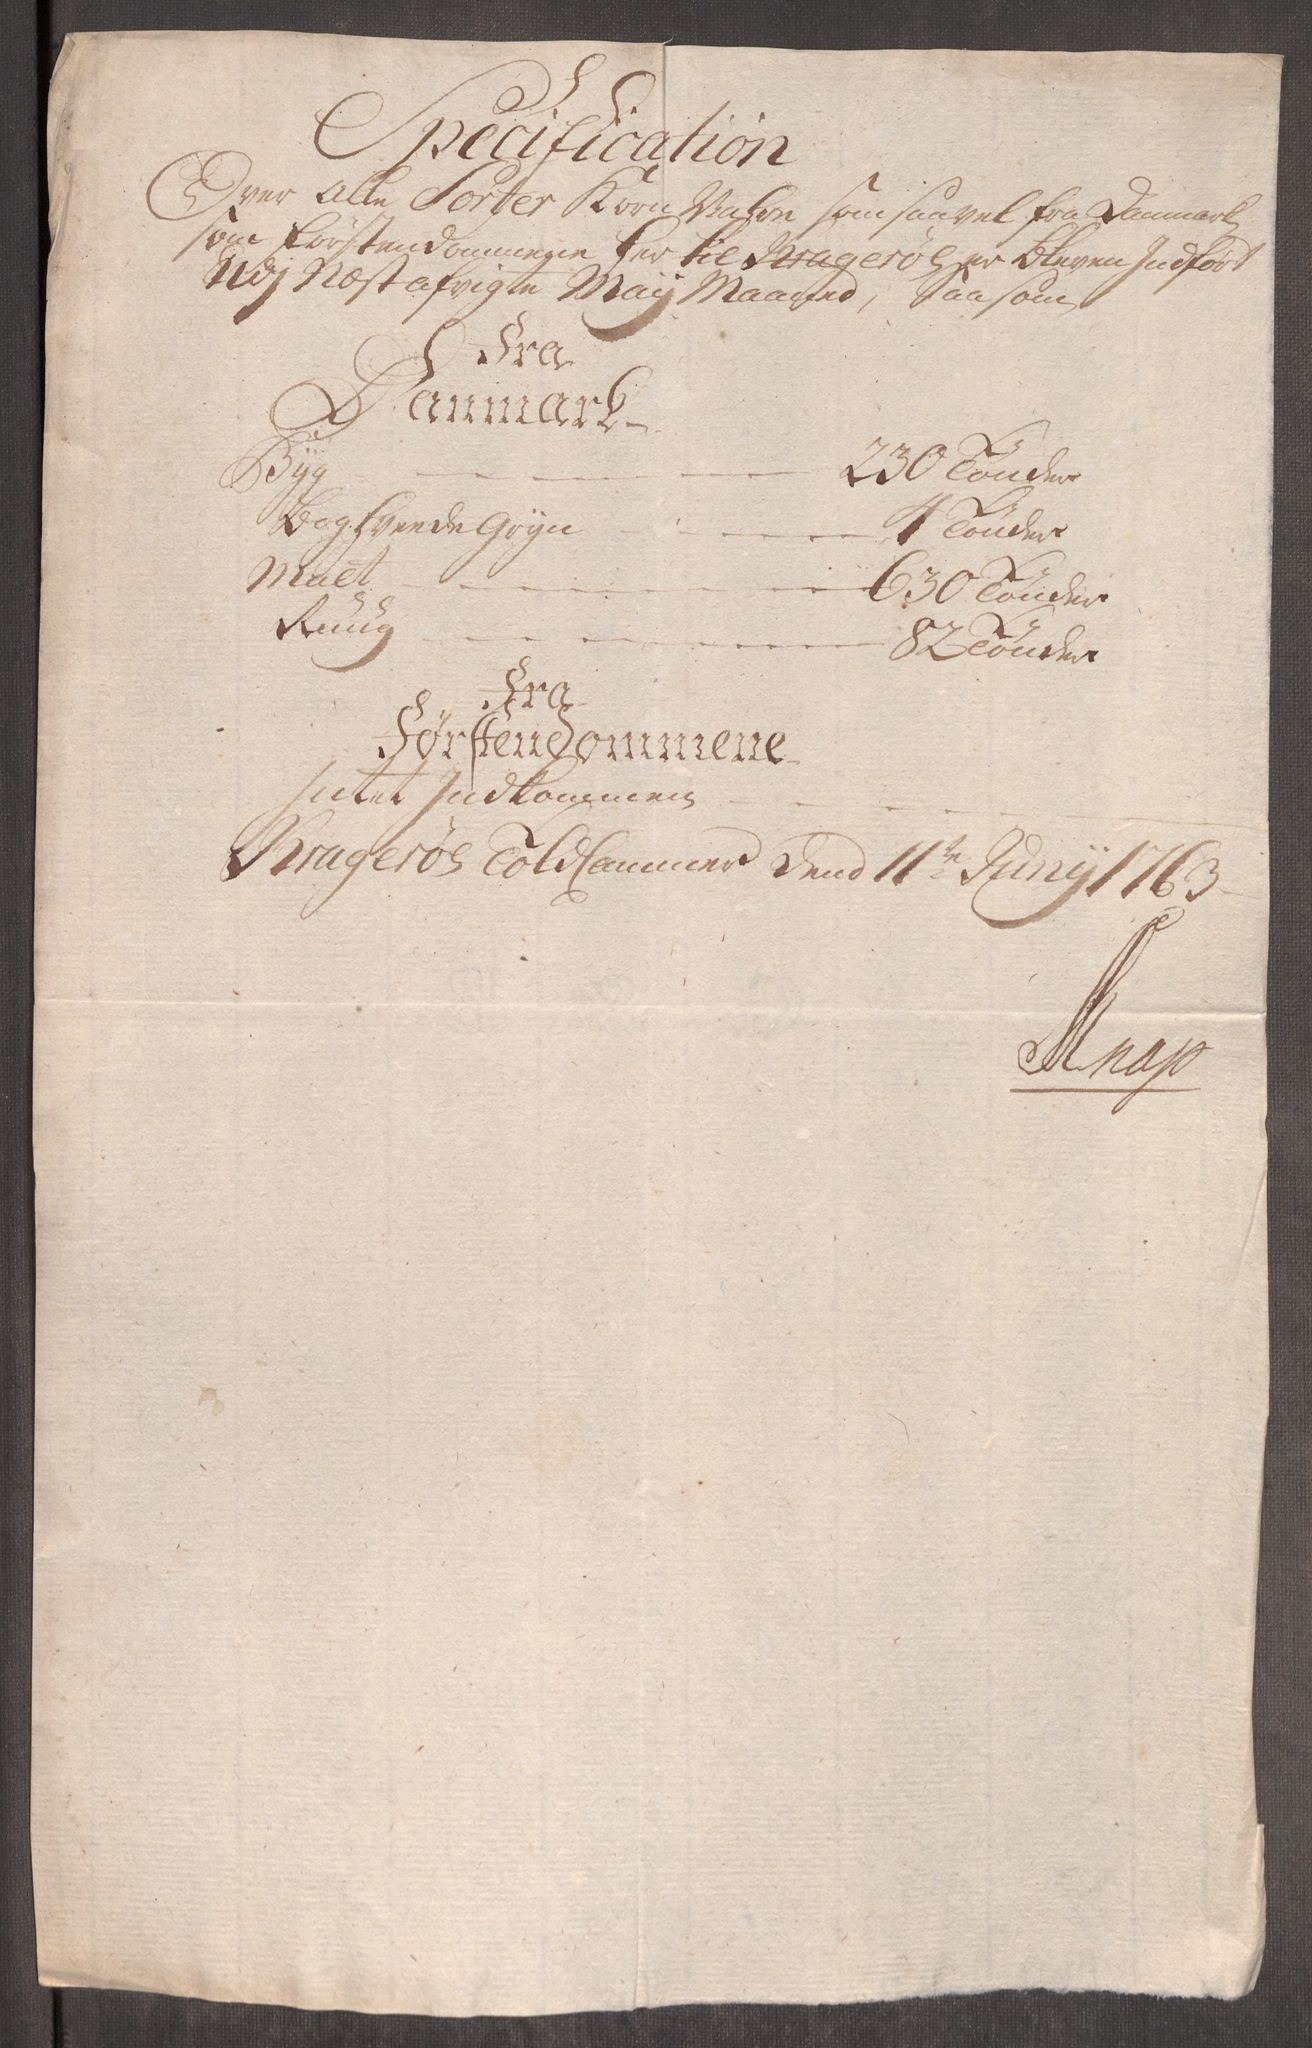 Specification
Over alle Sorter Korn Vahre som saavel fra Danmark
som Förstendommene her til Kragerøe er bleven Indført
Udj Næst afvigte Maij Maaned, Saasom
Fra
Danmark
Byg 230 Tönder
Boghvede Gryn 1 Tönder
Malt 630 Tönder
Ruug 82 Tönder
Fra
Førstendommene
Intet Indkommen
Kragerøe Told Cammer dend 11te Junij 1763
Knap